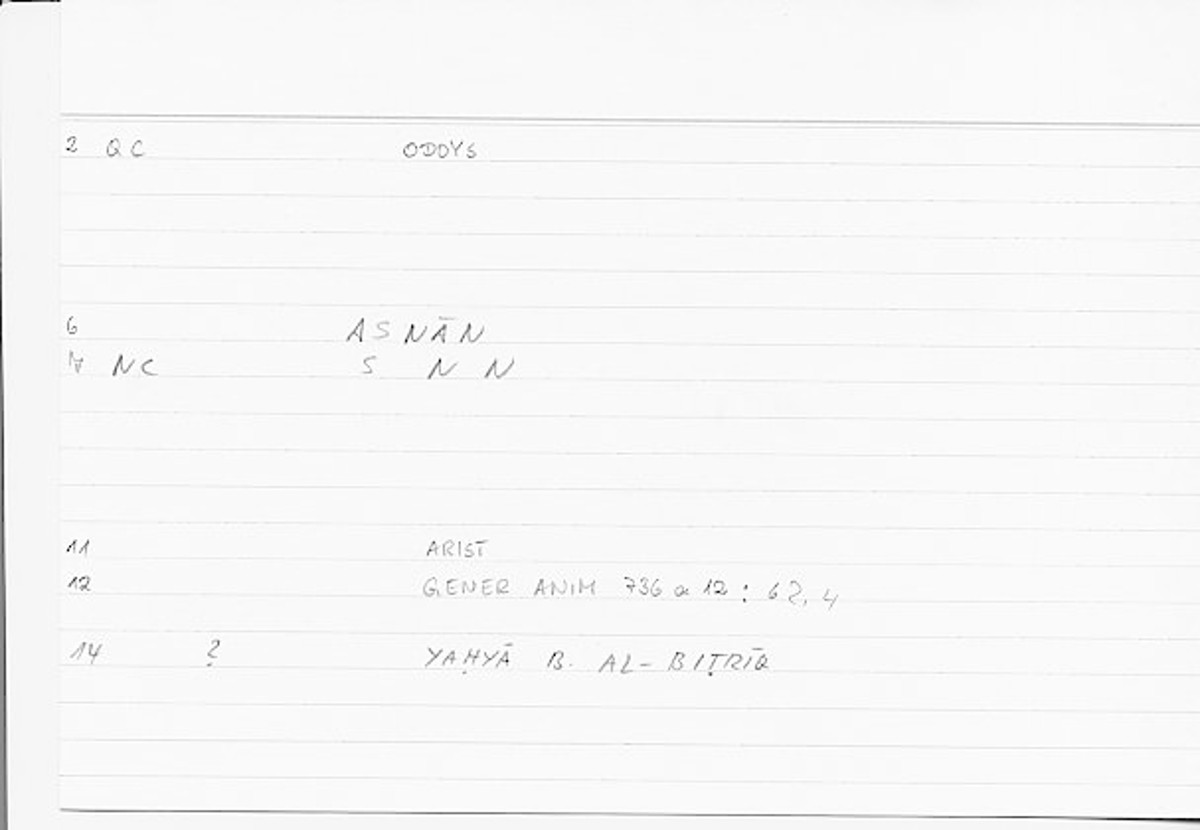 2 QC ODDYS
6 ASNĀN
NC S N N
11 ARIST
12 GENER ANIM 736 a 12 : 62, 4
14 ? YAḤYĀ B. AL-BIṬRĪQ